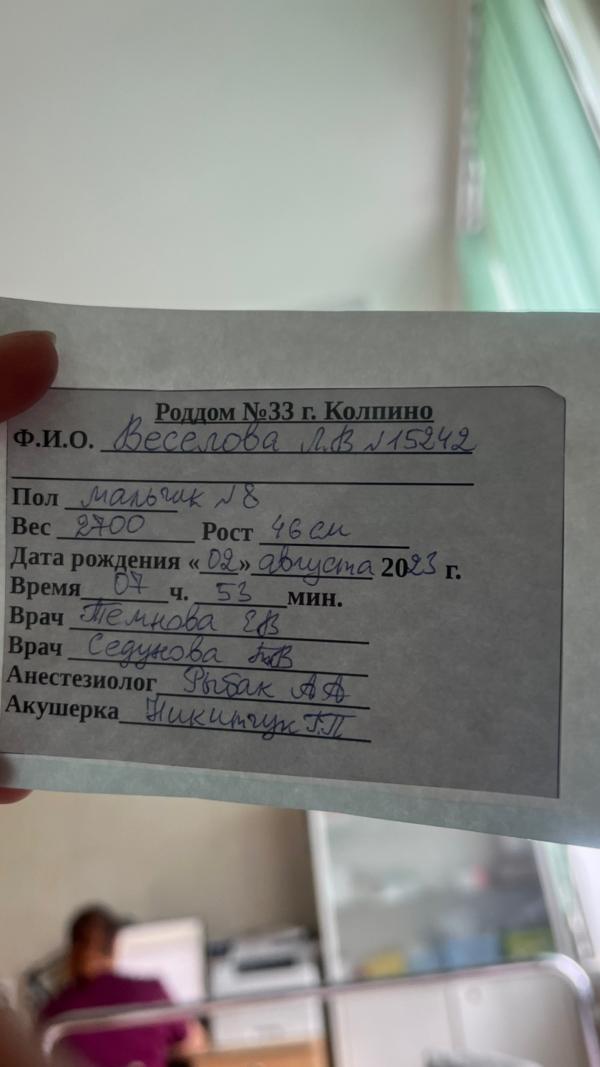 Роддом №33 г. Колпино
Ф.И.О. Веселова Л.В №15242
Пол мальчик №8
Вес 2700 Рост 46 см
Дата рождения «02» августа 2023 г.
Время 07 ч. 53 мин.
Врач Темнова ЕВ
Врач Седунова Т.В
Анестезиолог Рыбак АА
Акушерка Никитчук Г.П